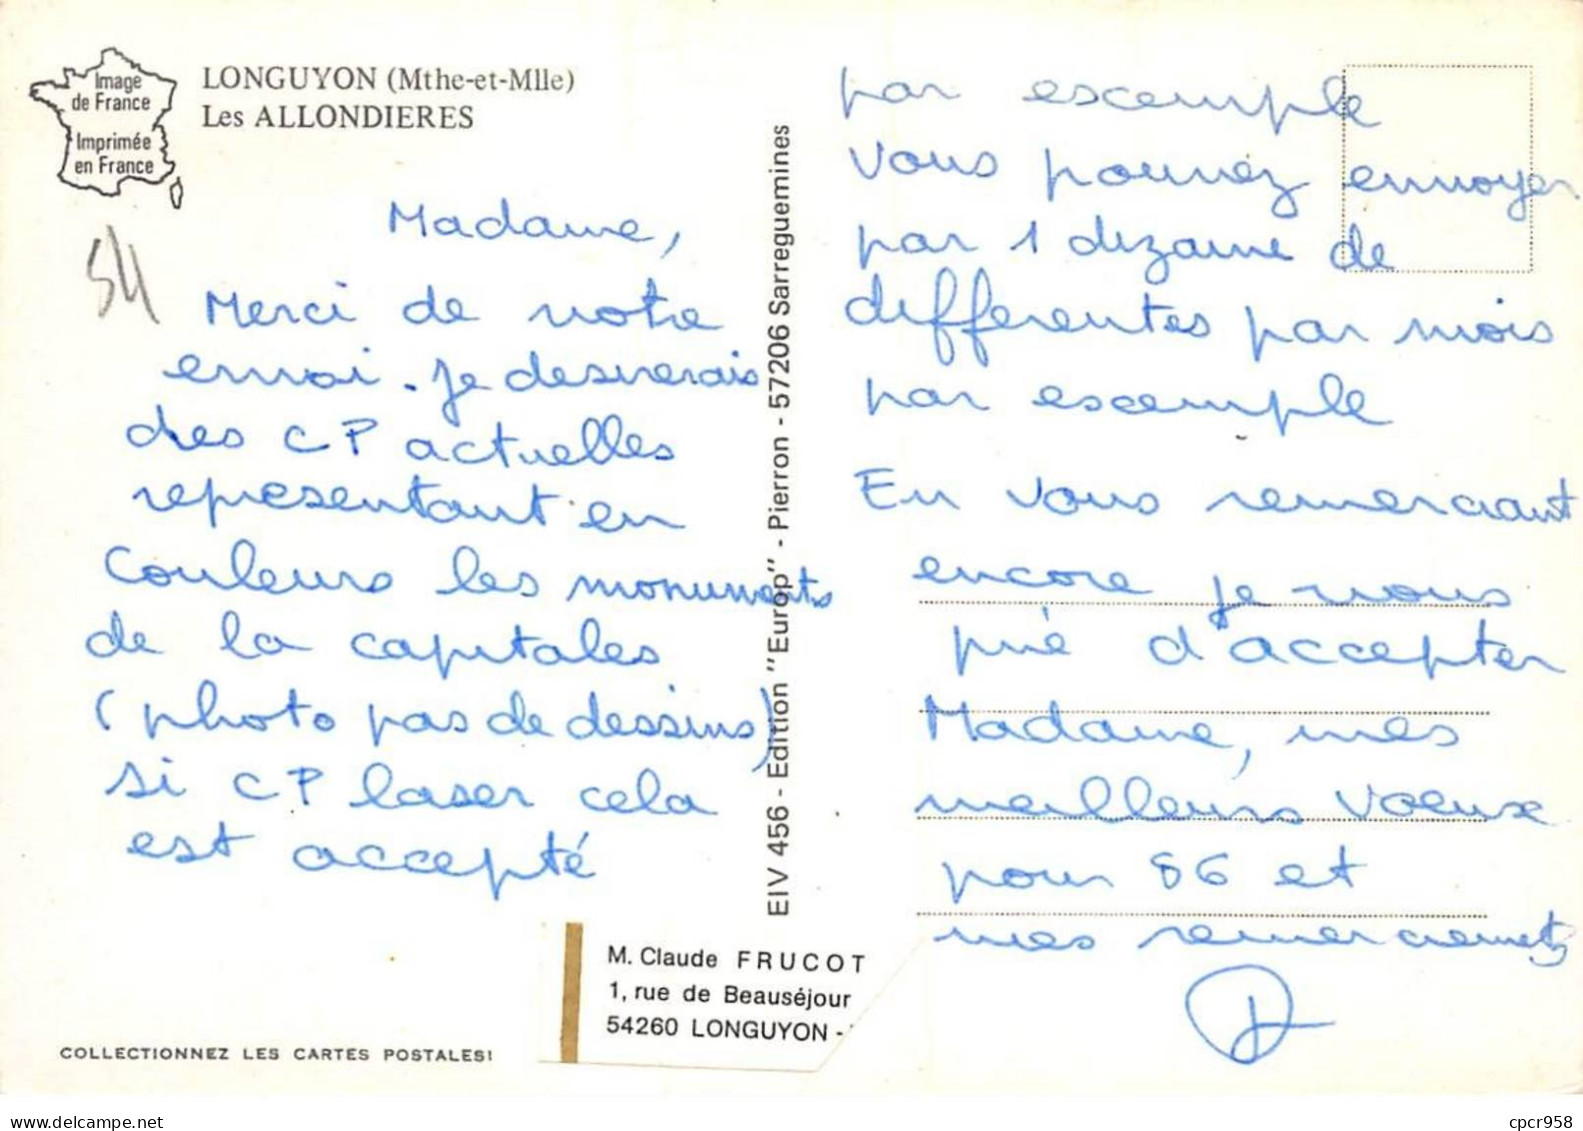 Image
de France
Imprimée
en France
LONGUYON (Mthe-et-Mlle)
Les ALLONDIERES
54
Madame,
Merci de votre
envoi. Je desirerais
des CP actuelles
representant en
Couleurs les monuments
de la capitales
(photo pas de dessins)
si CP laser cela
est accepté
M. Claude FRUCOT
1, rue de Beauséjour
54260 LONGUYON -
COLLECTIONNEZ LES CARTES POSTALES!
EIV 456 - Edition "Europ" - Pierron - 57206 Sarreguemines
par excemple
Vous pouvez envoyer
par 1 dizaine de
differentes par mois
par excemple
En vous remerciant
encore je vous
prie d'accepter
Madame, mes
meilleurs voeux
pour 86 et
mes remerciements
cpcr958